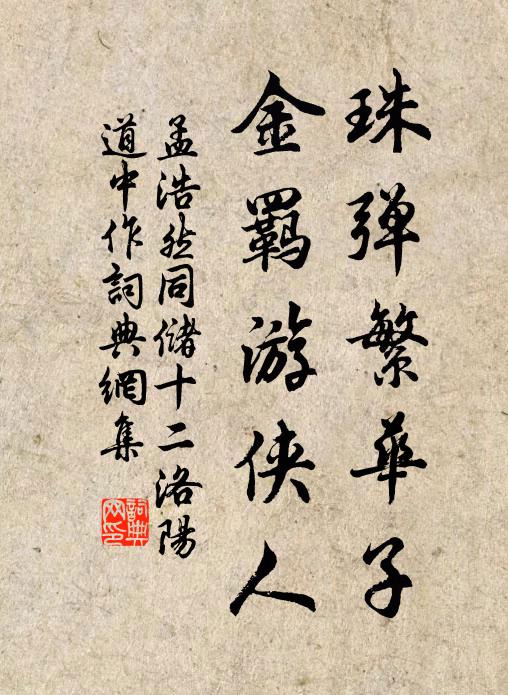 珠弹繁華子
金羈游侠人
孟浩然同儲十二洛陽
道中作詞典網集
詞典
网印